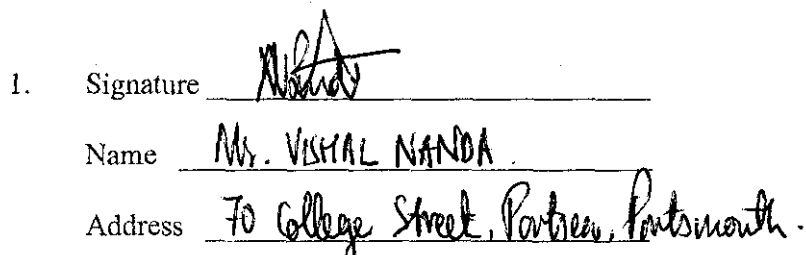 1. Signature
Name Mr. VISHAL NANDA.
Address 70 College Street, Portsea, Portsmouth.